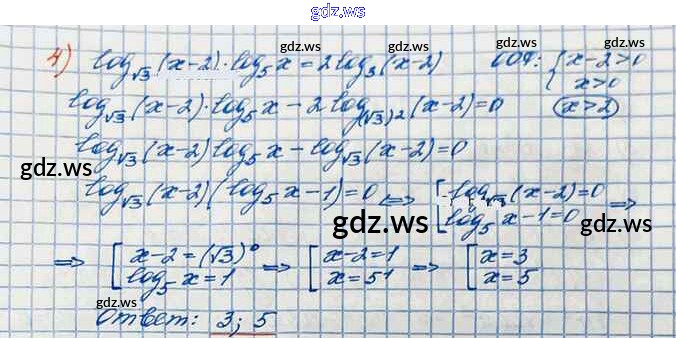 gdz.ws
4) log√3 (x-2)·log5 x = 2log3 (x-2) ООФ: { x-2>0
x>0
log√3 (x-2)·log5 x - 2log(√3)2 (x-2)=0 (x>2)
log√3 (x-2) log5 x - log√3 (x-2)=0
log√3 (x-2) (log5 x - 1)=0 <=> [ log√3 (x-2)=0 =>
log5 x-1=0
=> [ x-2=(√3)⁰ => [ x-2=1 => [ x=3
log5 x=1 x=5¹ x=5
Ответ: 3; 5
gdz.ws
gdz.ws
gdz.ws
gdz.ws
gdz.ws
gdz.ws
gdz.ws
gdz.ws